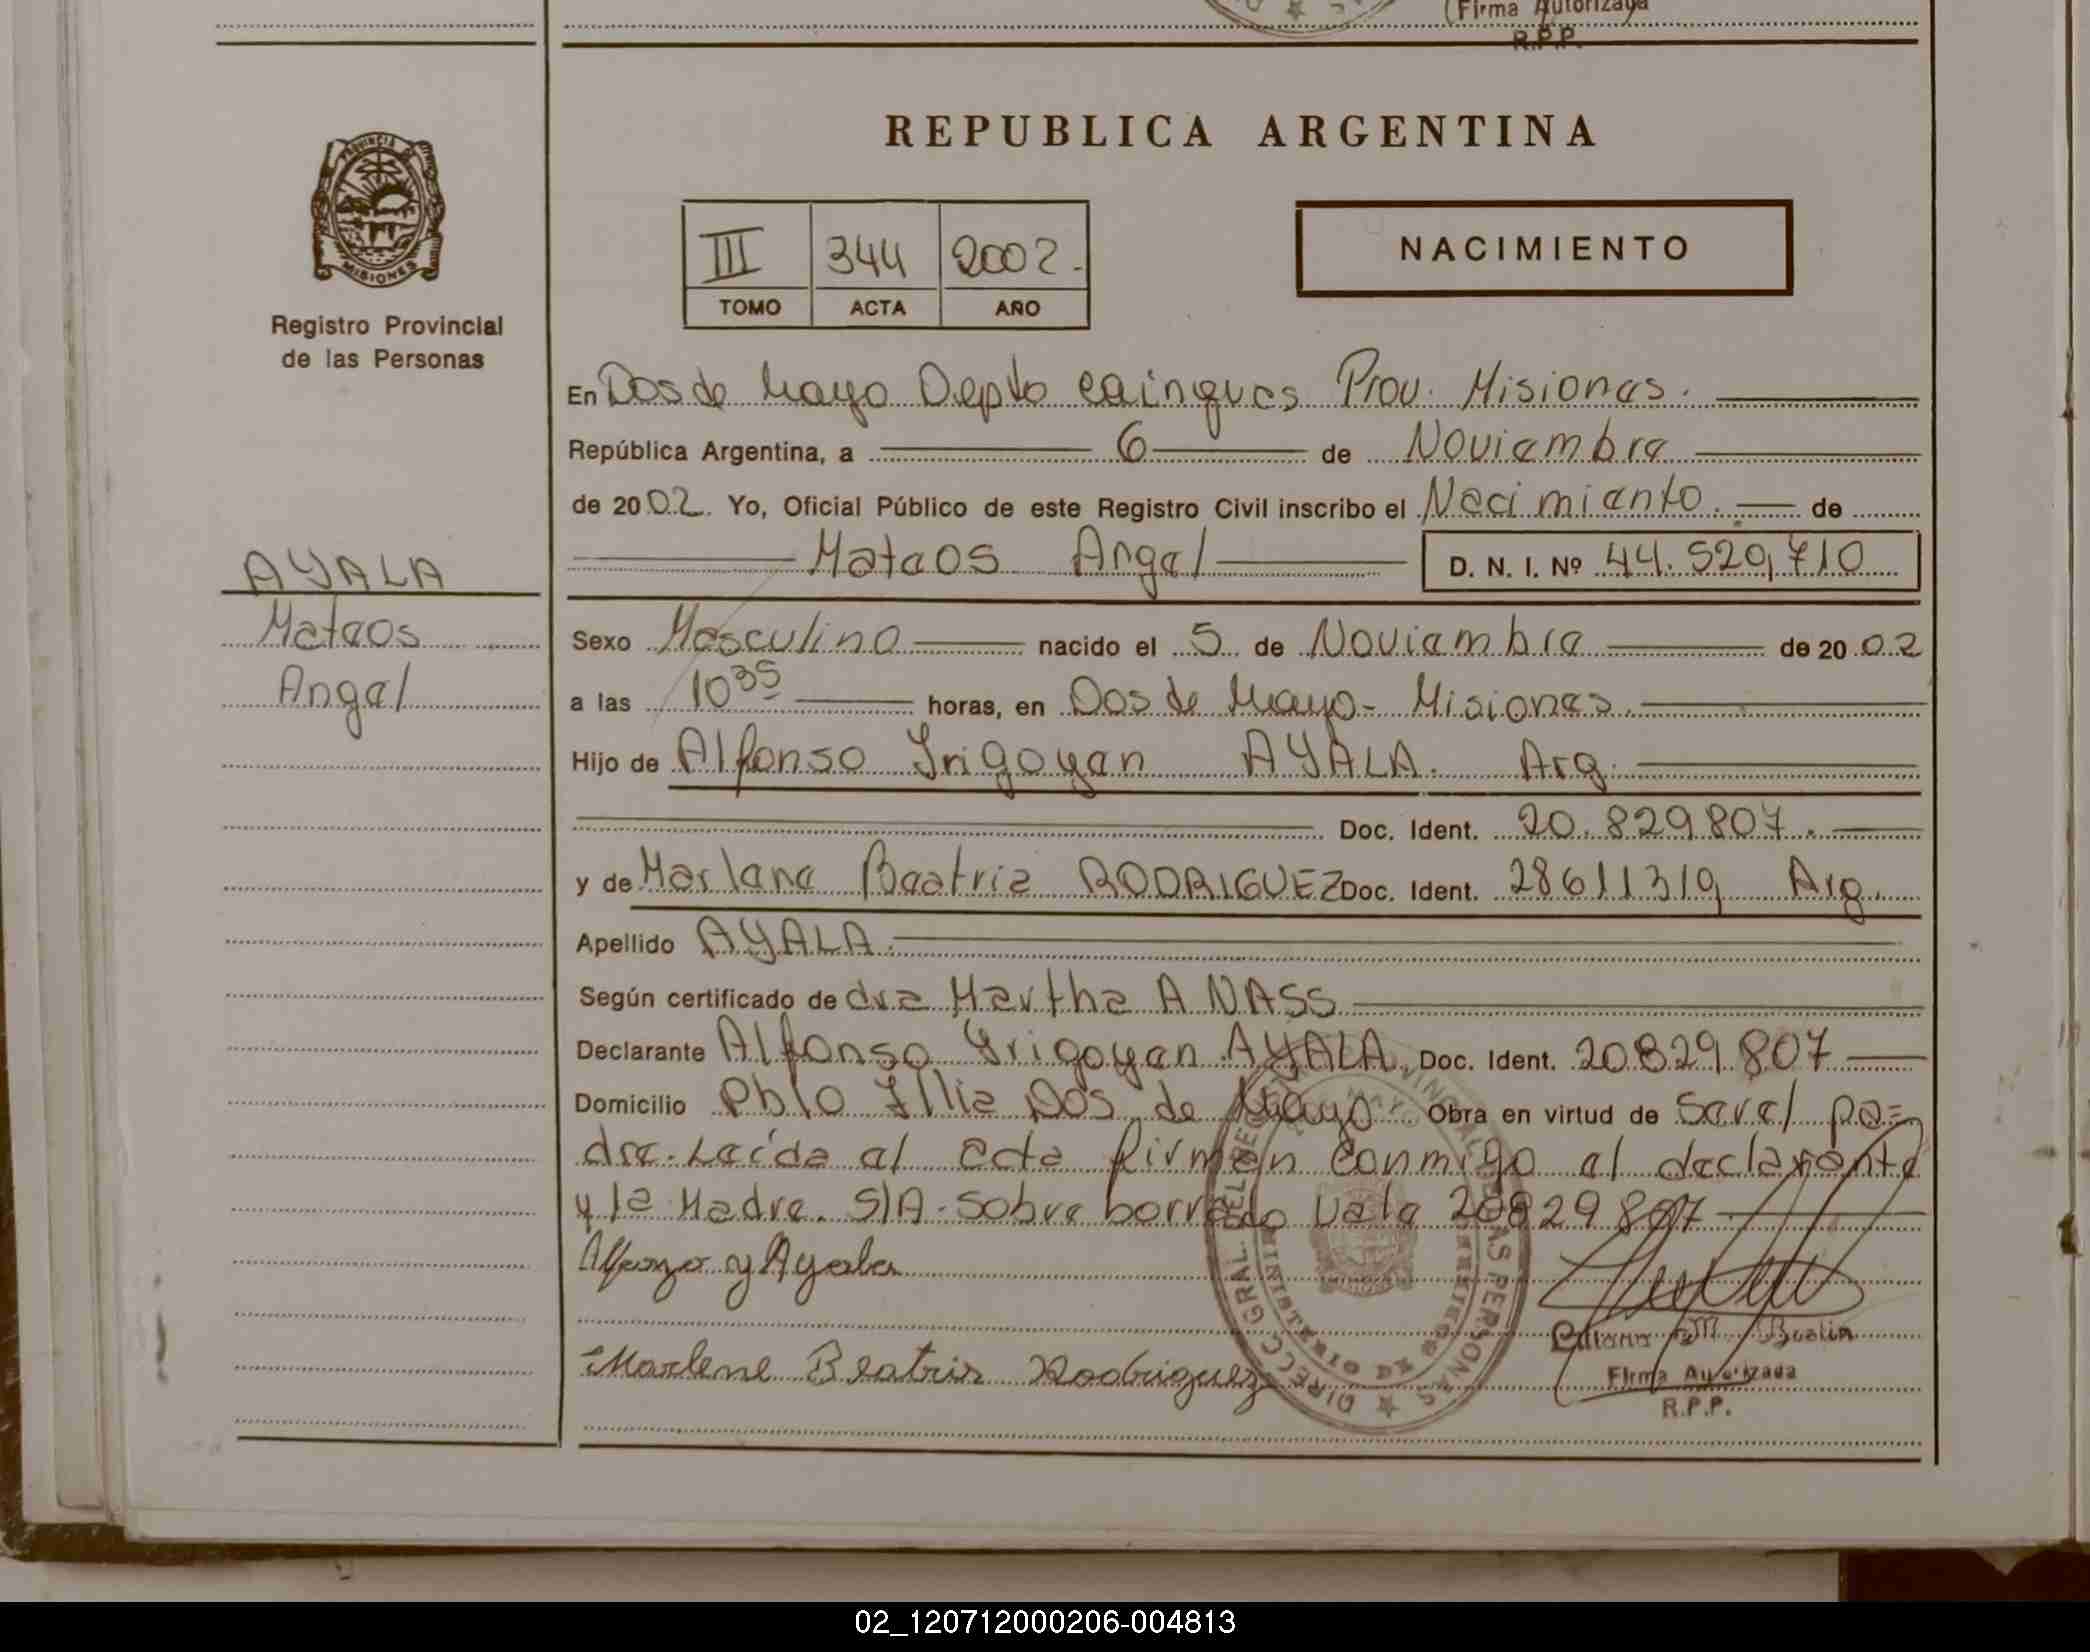 (Firma Autorizada
R.P.P.
REPUBLICA ARGENTINA
PROVINCIA DE
MISIONES
Registro Provincial
de las Personas
III 344 2002.
TOMO ACTA AÑO
NACIMIENTO
En Dos de Mayo Depto Cainguas Prov. Misiones.
República Argentina, a 6 de Noviembre
de 2002. Yo, Oficial Público de este Registro Civil inscribo el Nacimiento. de
Mateos Angel D. N. I. Nº 44.520,710
AYALA
Mateos
Angel
Sexo Masculino nacido el 5 de Noviembre de 2002
a las 10 35 horas, en Dos de Mayo- Misiones.
Hijo de Alfonso Yrigoyen AYALA. Arg.
Doc. Ident. 20.829807.
y de Marlene Beatriz RODRIGUEZ Doc. Ident. 28611319 Arg.
Apellido AYALA.
Según certificado de dra Martha A NASS
Declarante Alfonso Yrigoyen AYALA. Doc. Ident. 20829807
Domicilio Pblo Illia Dos de Mayo. Obra en virtud de Ser el pa=
dre. Leída el acta firman conmigo el declarante
y la Madre. S/A. Sobre borrado Vale 20829807
Alfonzo y Ayala
Marlene Beatriz Rodriguez
Liliana M. Bualin
Firma Autorizada
R.P.P.
02_120712000206-004813